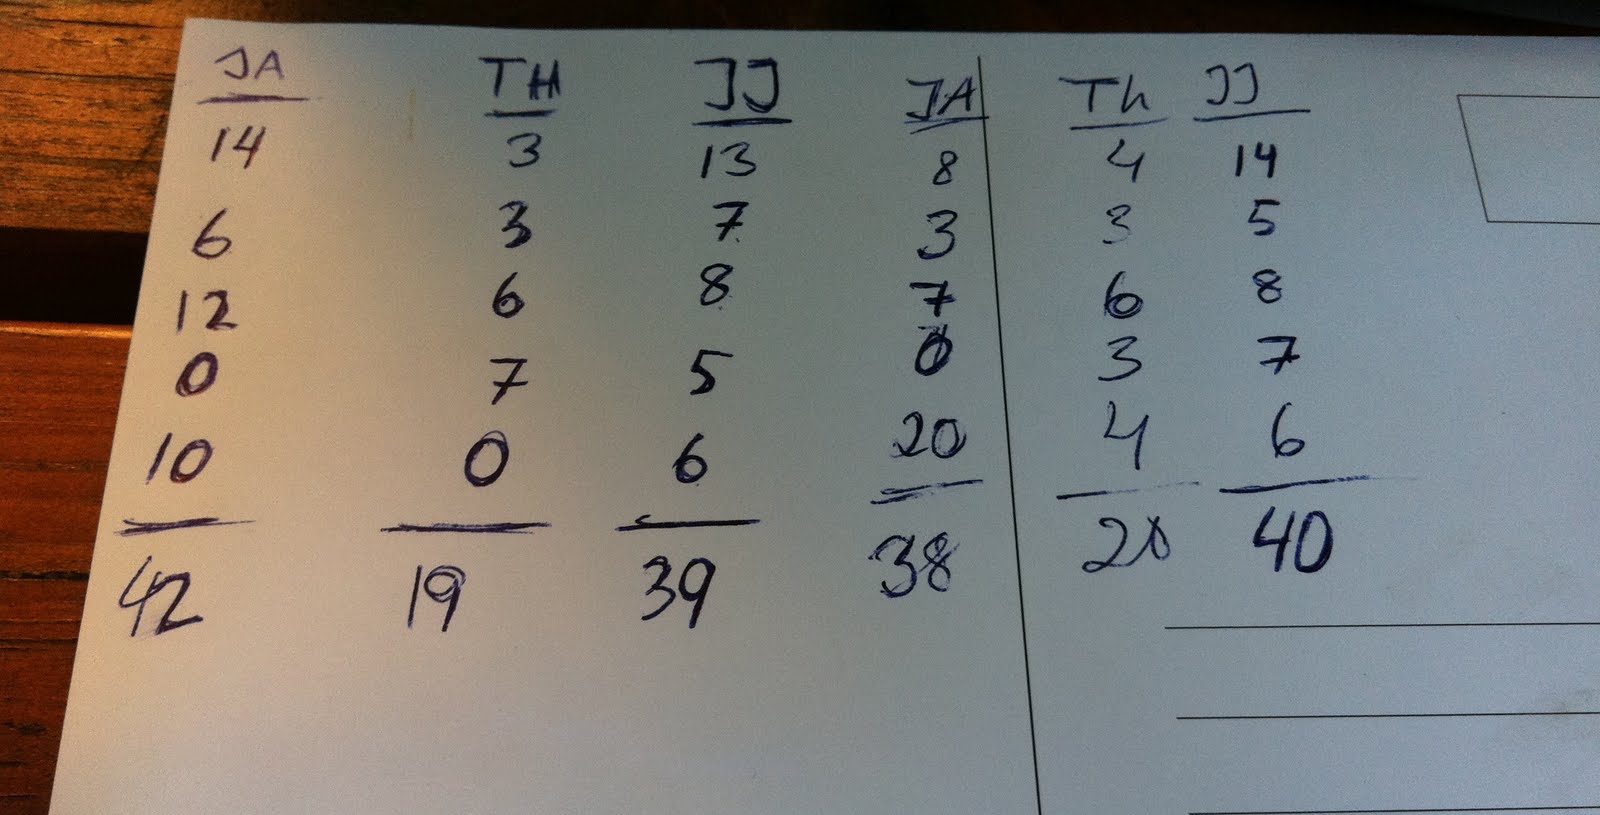 JA TH JJ JA Th JJ
14 3 13 8 4 14
6 3 7 3 3 5
12 6 8 7 6 8
0 7 5 0 3 7
10 0 6 20 4 6
42 19 39 38 20 40